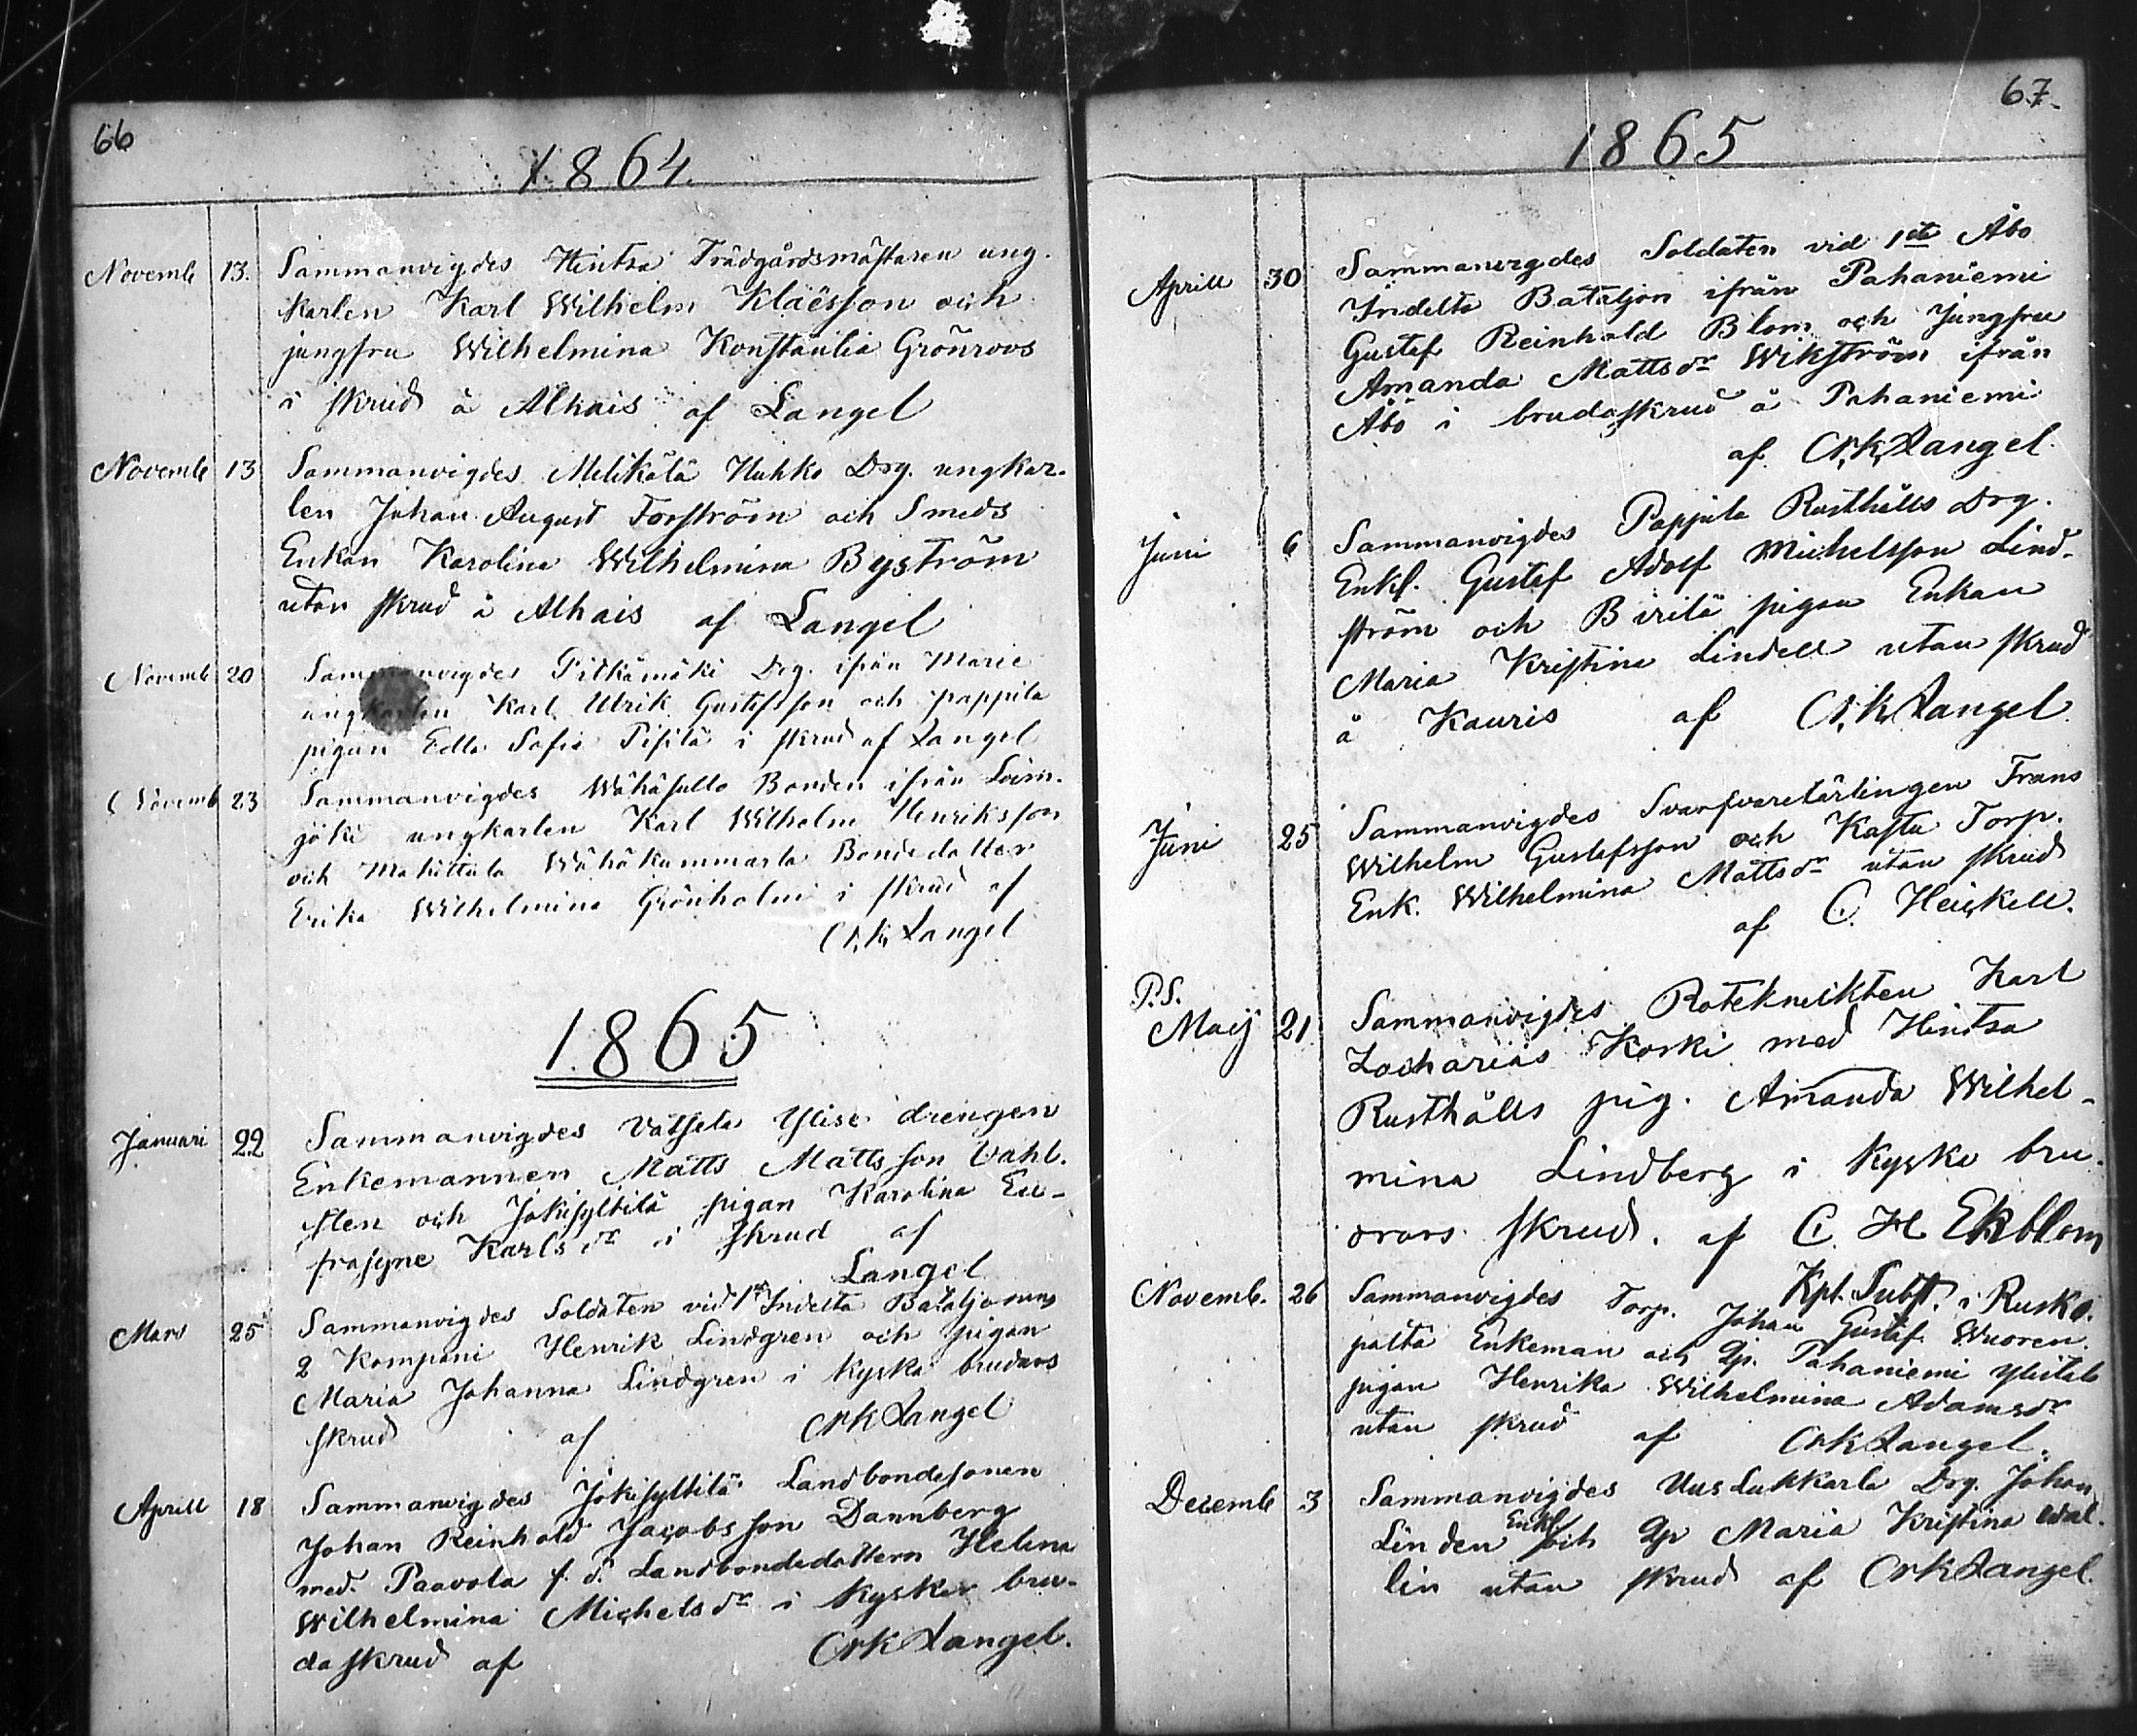 66
1864.
Novemb 13. Sammanvigdes Hintsa Trädgårdsmästaren ung-
karlen Karl Wilhelm Klaësson och
jungfru Wilhelmina Konstantia Grönroos
i skrud å Alhais af Langel
Novemb 13 Sammanvigdes Huhko Drg. ungkar-
len Johan August Forsström och Smeds
Enkan Karolina Wilhelmina Byström
utan skrud å Alhais af Langel
Novemb 20 Sammanvigdes Pitkämäki Drg. ifrån Marie
ungkarlen Karl Ulrik Gustafsson och pappila
pigan Edla Sofia i skrud af Langel
Novemb 23 Sammanvigdes Bonden ifrån Loim-
joki ungkarlen Karl Wilhelm Henriksson
och Mahittula Wähäkummarla Bondedotter
Erika Wilhelmina Grönholm i skrud af
Langel
1865
Januari 22 Sammanvigdes Vätsela Ylise drengen
Enkemannen Matts Mattsson Vahl-
sten och Jokisyltilä pigan Karolina Eu-
frosyne Karlsdr i skrud af
Langel
Mars 25 Sammanvigdes Soldaten vid 1sta Indelta Bataljonens
2 Kompani Henrik Lindgren och pigan
Maria Johanna Lindgren i kyska brudars
skrud af Langel
Aprill 18 Sammanvigdes Jokisyltilä Landbondesonen
Johan Reinhold Jacobsson Dannberg
med Paavola f. d. Landbondedottern Helena
Wilhelmina Michelsdr i kyskas bru-
daskrud af Langel.
67.
1865
Aprill 30 Sammanvigdes Soldaten vid 1sta Åbo
Indelta Bataljon ifrån Pahaniemi
Gustaf Reinhold Blom och Jungfru
Amanda Mattsdr Wikström ifrån
Åbo i brudaskrud å Pahaniemi
af Langel.
Juni 6 Sammanvigdes Pappila Rusthålls Drg.
Enkl. Gustaf Adolf Michelsson Lind-
ström och pigan Enkan
Maria Kristina Lindell utan skrud
å Kauris af Langel.
Juni 25 Sammanvigdes Svarfvarelärlingen Frans
Wilhelm Gustafsson och Kastu Torp.
Enk. Wilhelmina Mattsdr utan skrud
af C. Heickell.
P.S.
Maij 21. Sammanvigdes Roteknekten Karl
Zacharias Koski med Hintsa
Rusthålls pig. Amanda Wilhel-
mina Lindberg i kyska bru-
drars skrud. af C. H Ekblom
Kpl. Subst. i Rusko.
Novemb. 26 Sammanvigdes Torp. Johan Gustaf Wuoren-
palta Enkeman och Qp. Pahaniemi Ylitalo
pigan Henrika Wilhelmina Adamsdr
utan skrud af Langel.
Decemb 3 Sammanvigdes Uuslukkarla Drg. Johan
Linden Enkl och Qp Maria Kristina Wal-
lin utan skrud af Langel.